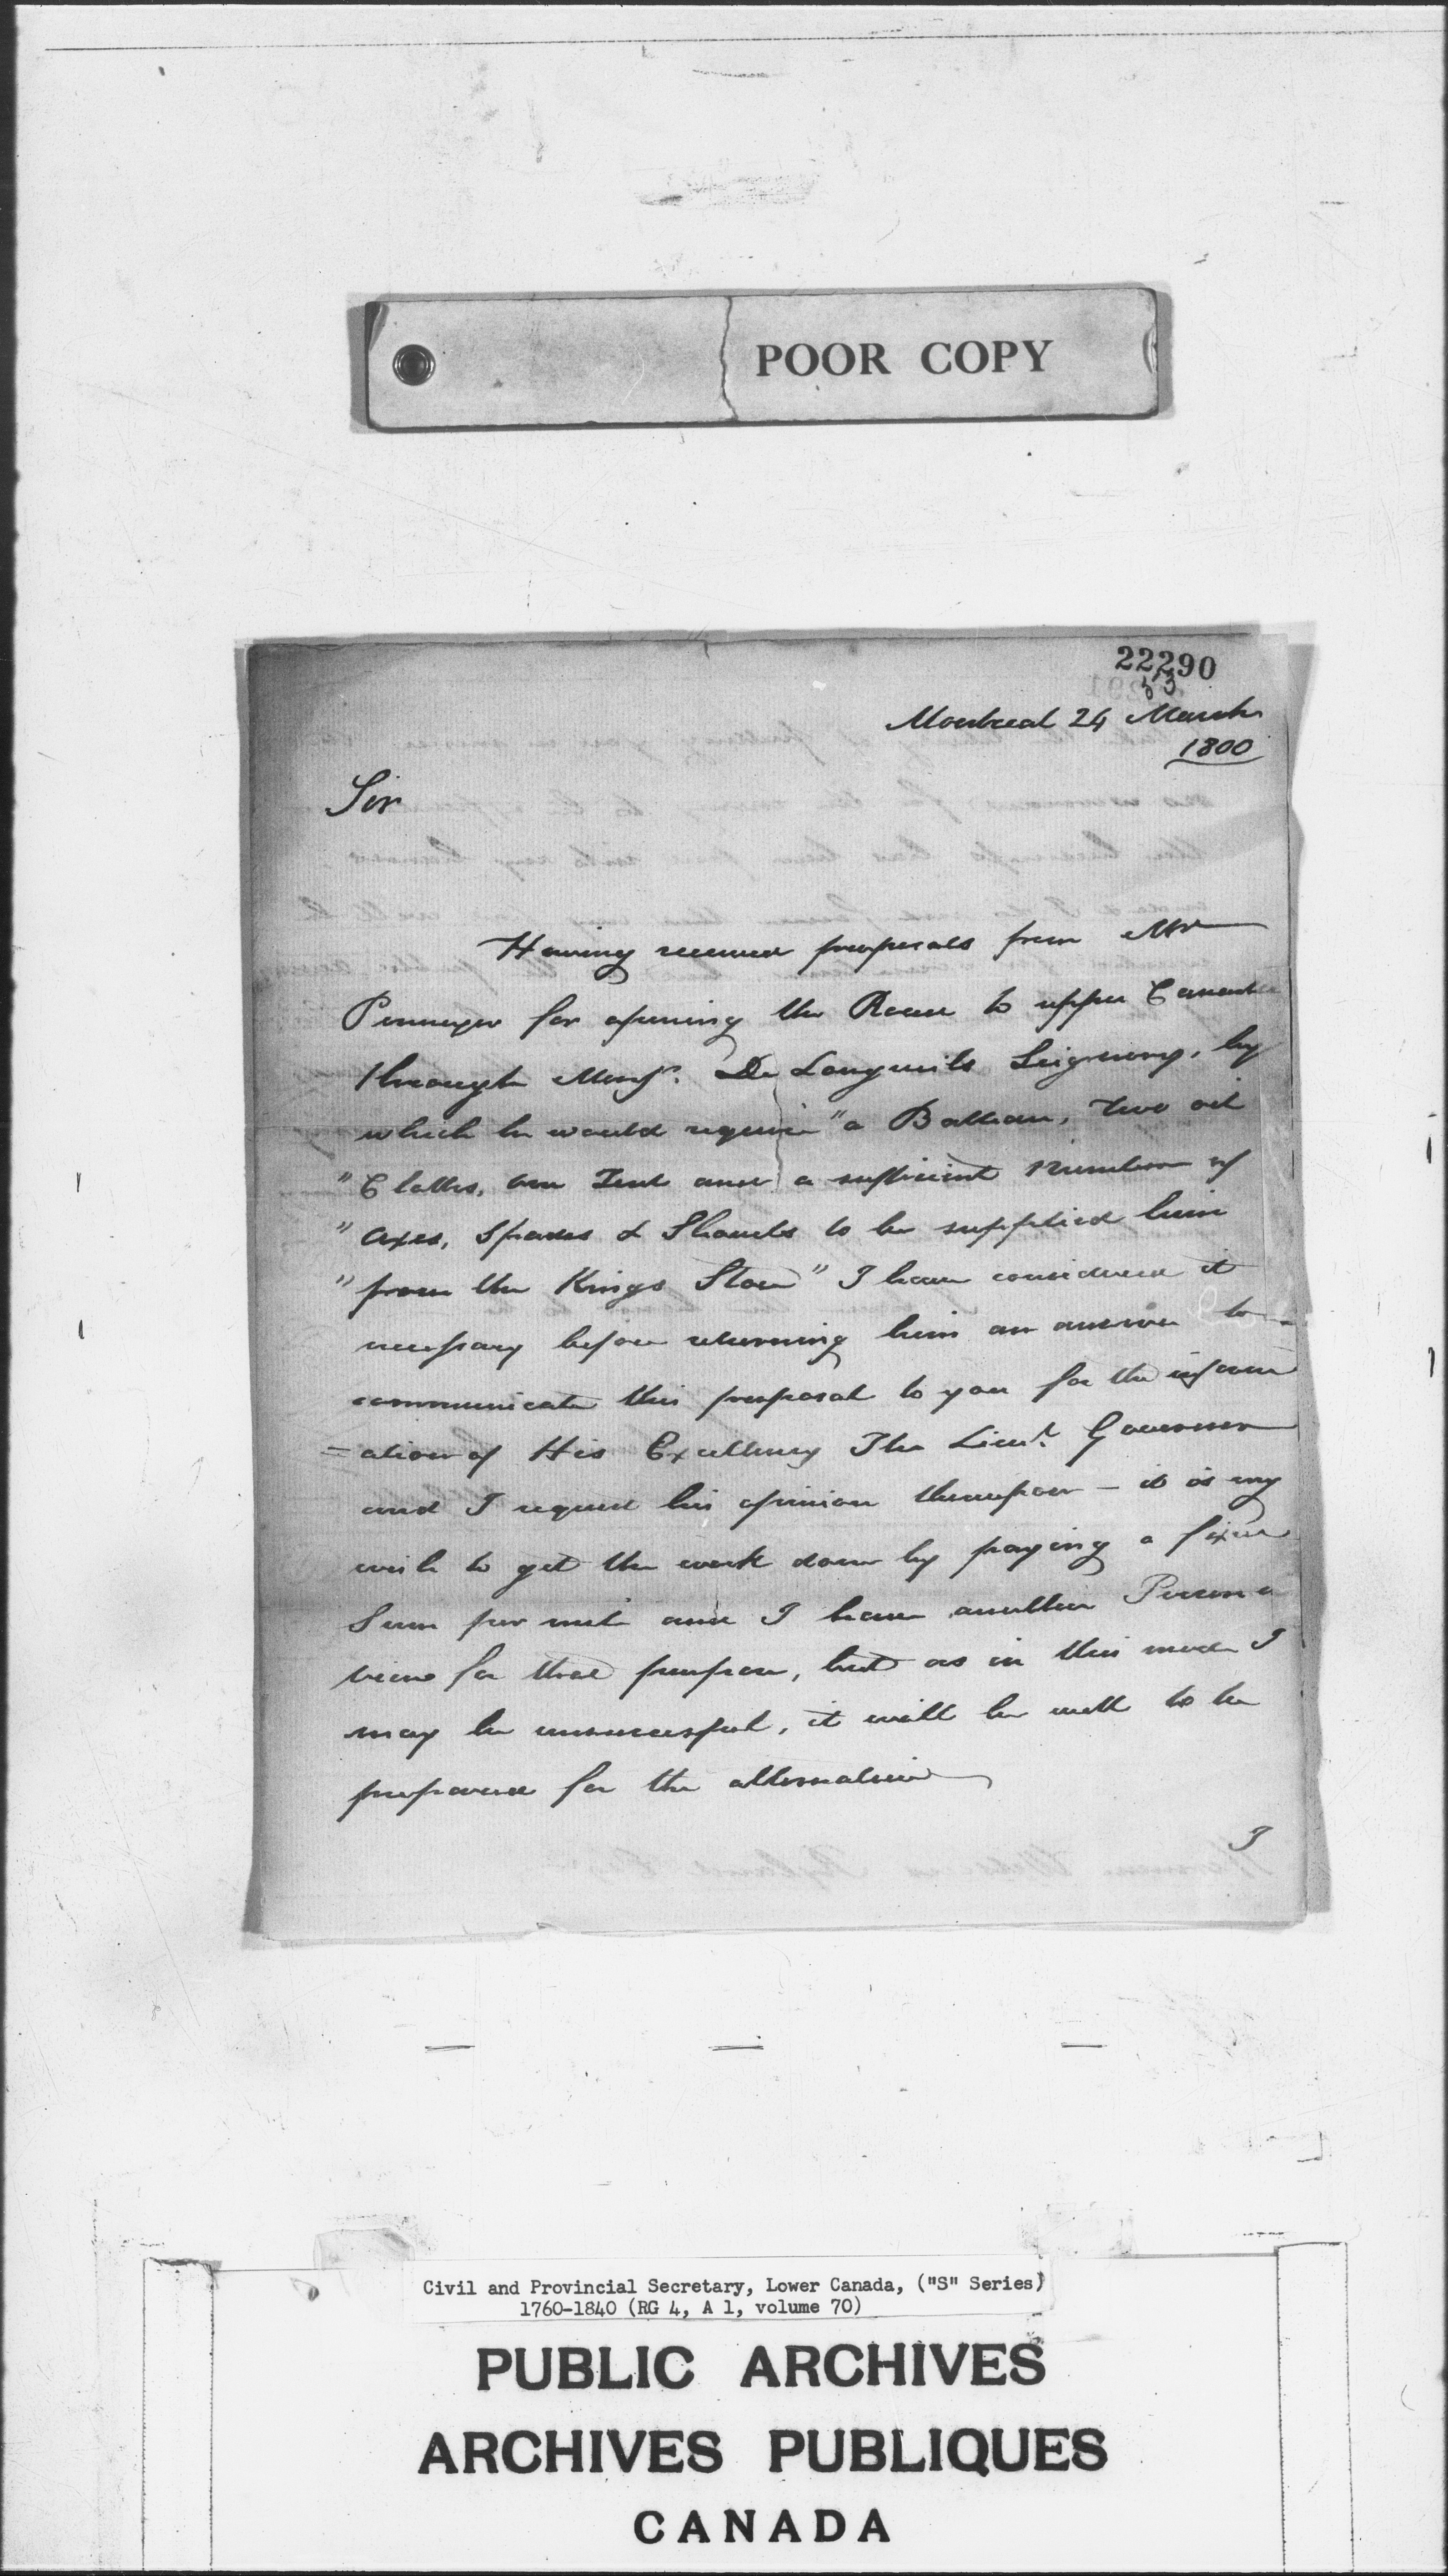 POOR COPY
22290
Montreal 24 March
1800
Sir
Having received proposals from Mr
Pennoyer for opening the Road to upper Canada
through Monsr. De Longueuils Seigneury, by
which he would require "a Batteau, Two oil
"Cloths, one Tent and a sufficient Number of
"Axes, Spades & Shovels to be supplied him
"from the Kings Store" I have considered it
necessary before returning him an answer to
communicate this proposal to you for the inform
=ation of His Excellency The Lieut. Governor
and I request his opinion thereupon - it is my
wish to get the work done by paying a fixed
Sum per mile and I have another Person in
view for that purpose, but as in this mode I
may be unsuccessful, it will be well to be
prepared for the alternative
I
Civil and Provincial Secretary, Lower Canada, ("S" Series)
1760-1840 (RG 4, A 1, volume 70)
PUBLIC ARCHIVES
ARCHIVES PUBLIQUES
CANADA